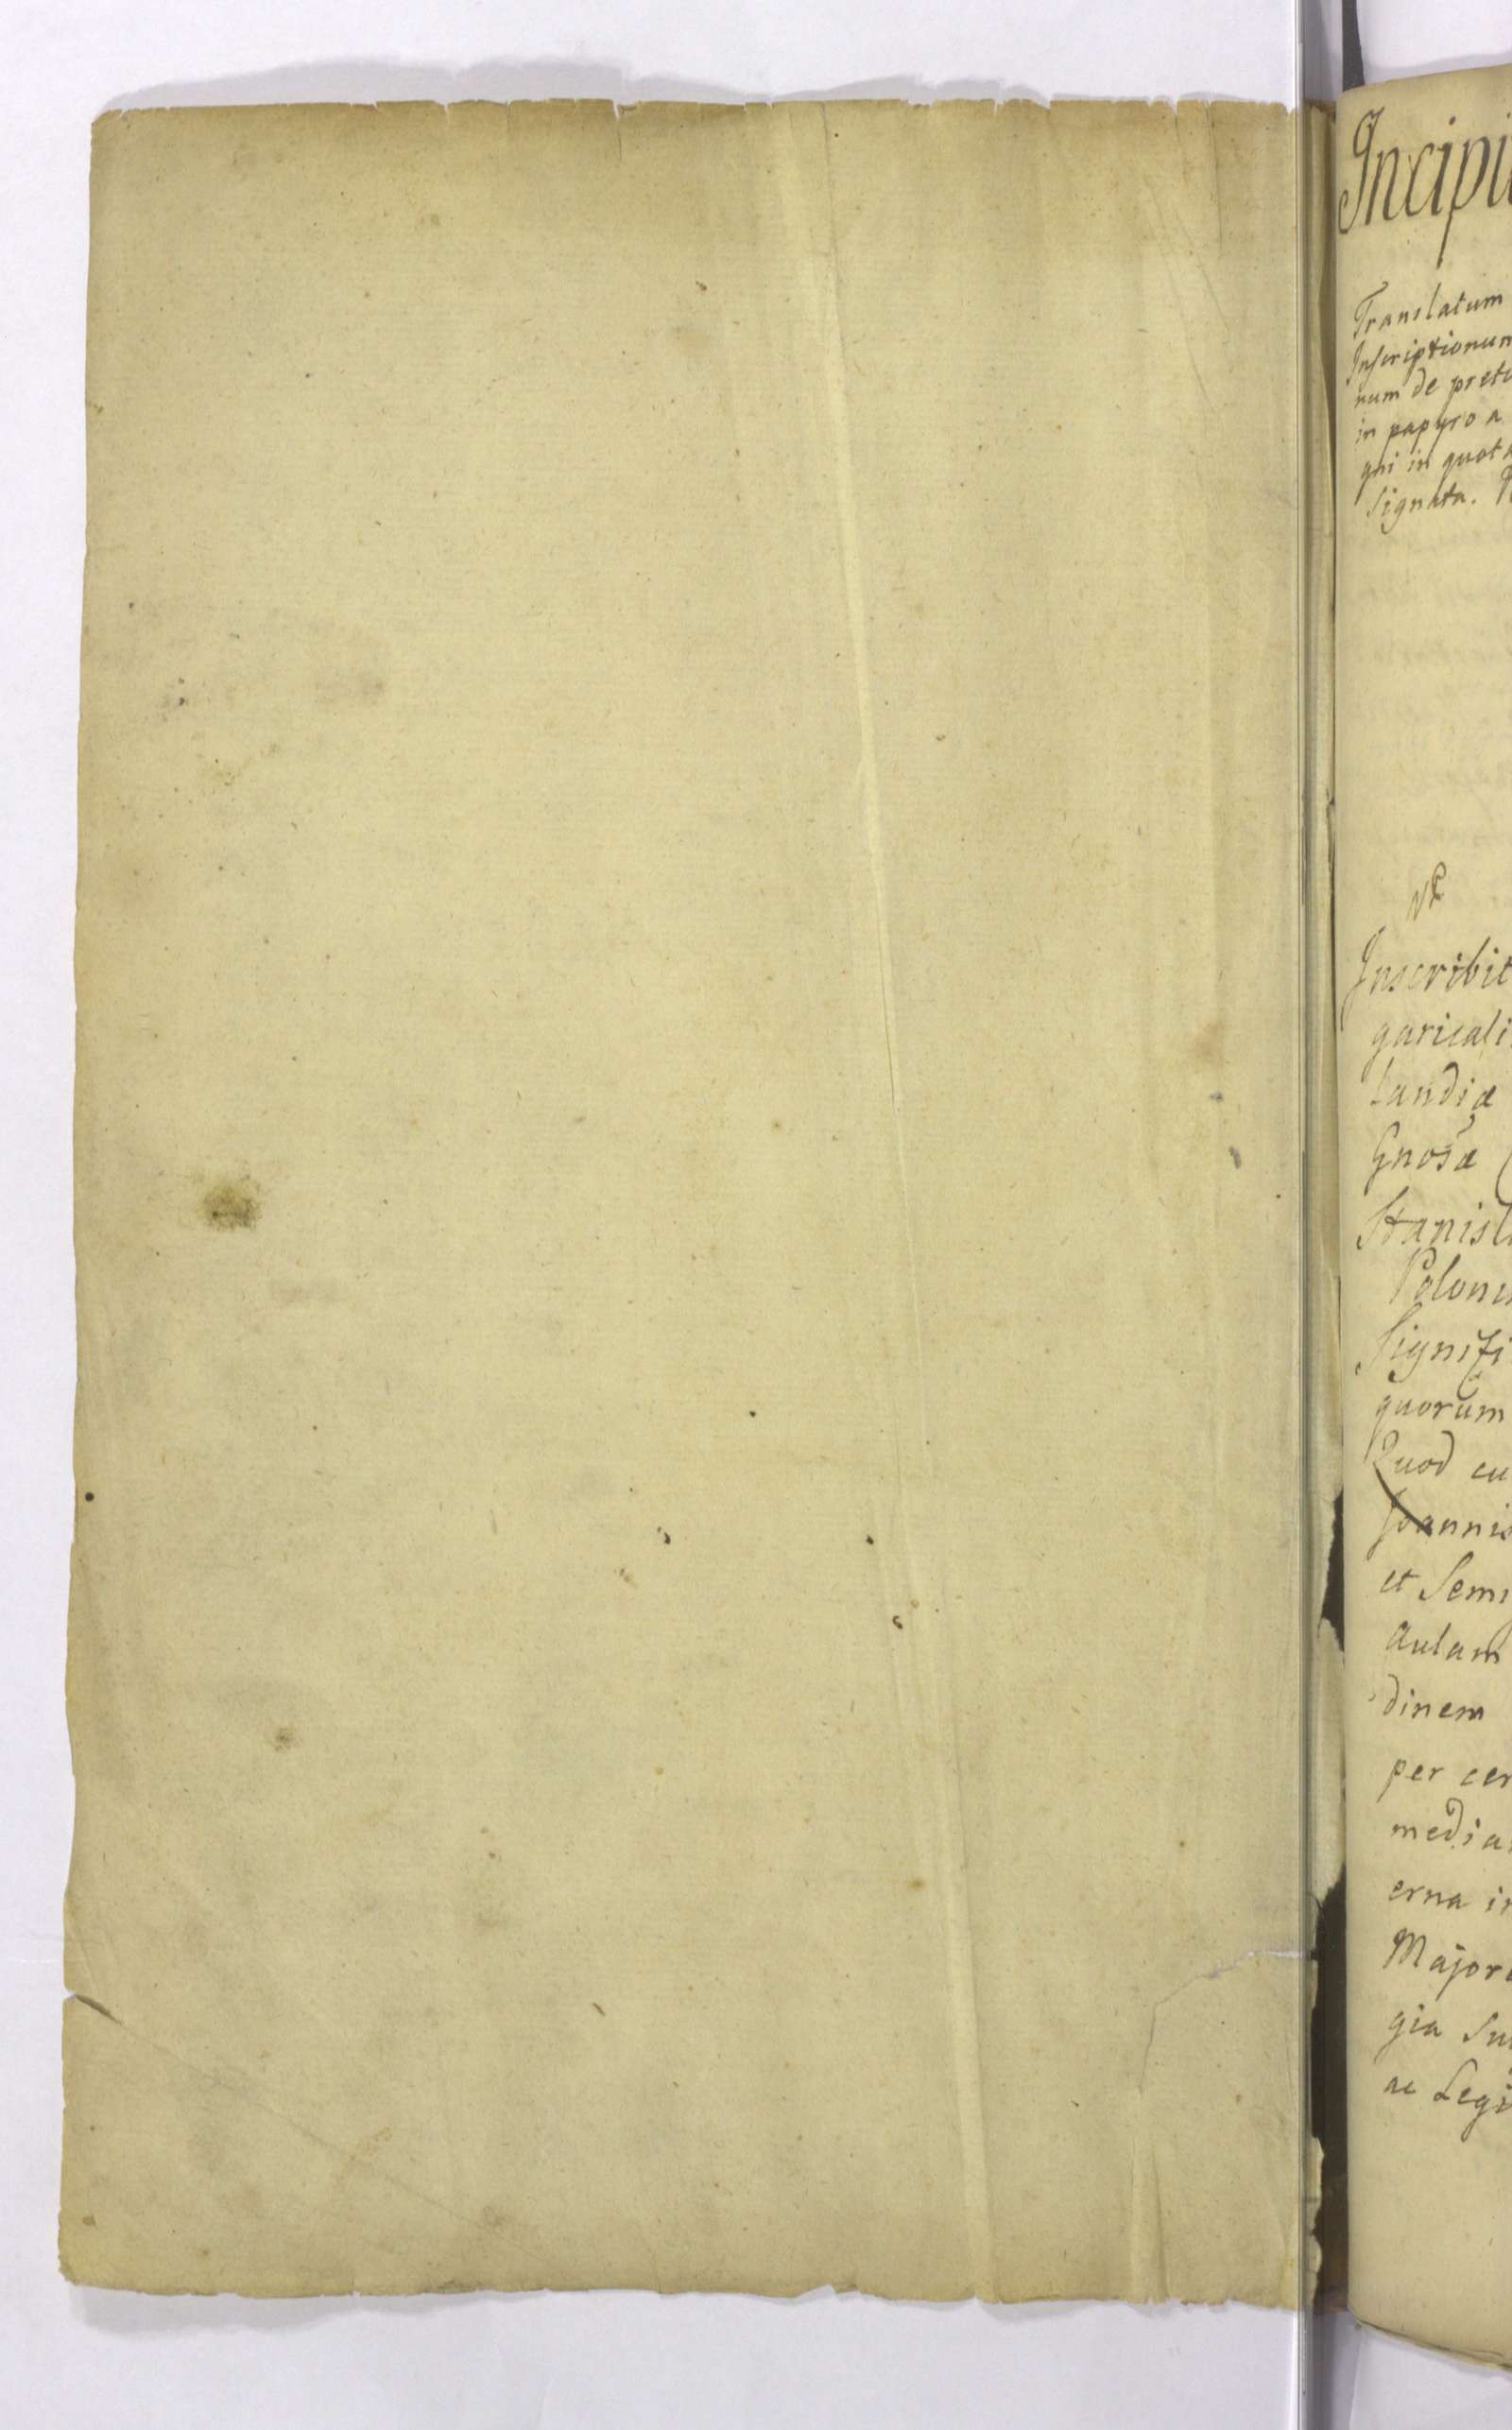 Incipi
Translatum
Inscriptionum
num de prete
in papyro a
qui in quota
signata.
Inscribit
garicali
landiæ
Gnosæ
Stanisl
Poloni
Signifi
quorum
Quod cu
Joannis
et Semi
aulam
dinem
per cer
media
erna in
Majori
gia su
ac Legi